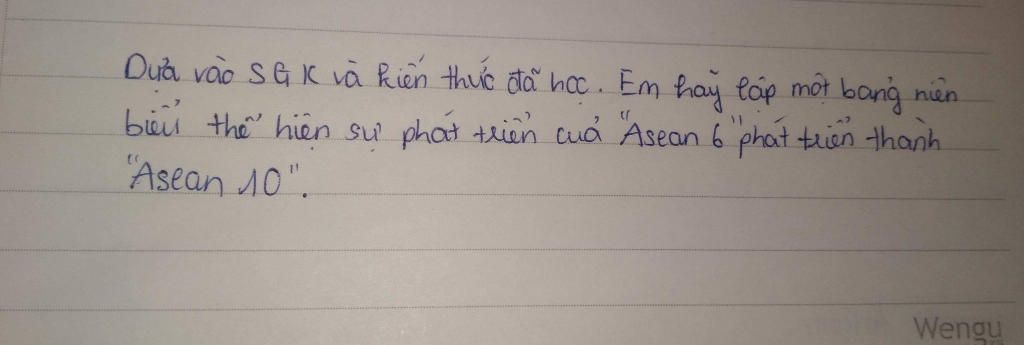 Dựa vào SGK và kiến thức đã học. Em hãy lập một bảng niên
biểu thể hiện sự phát triển của "Asean 6" phát triển thành
"Asean 10".
Wengu